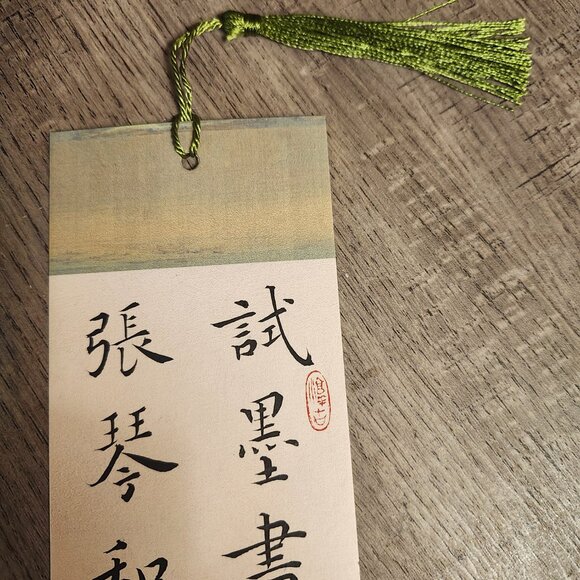 試墨書
張琴和